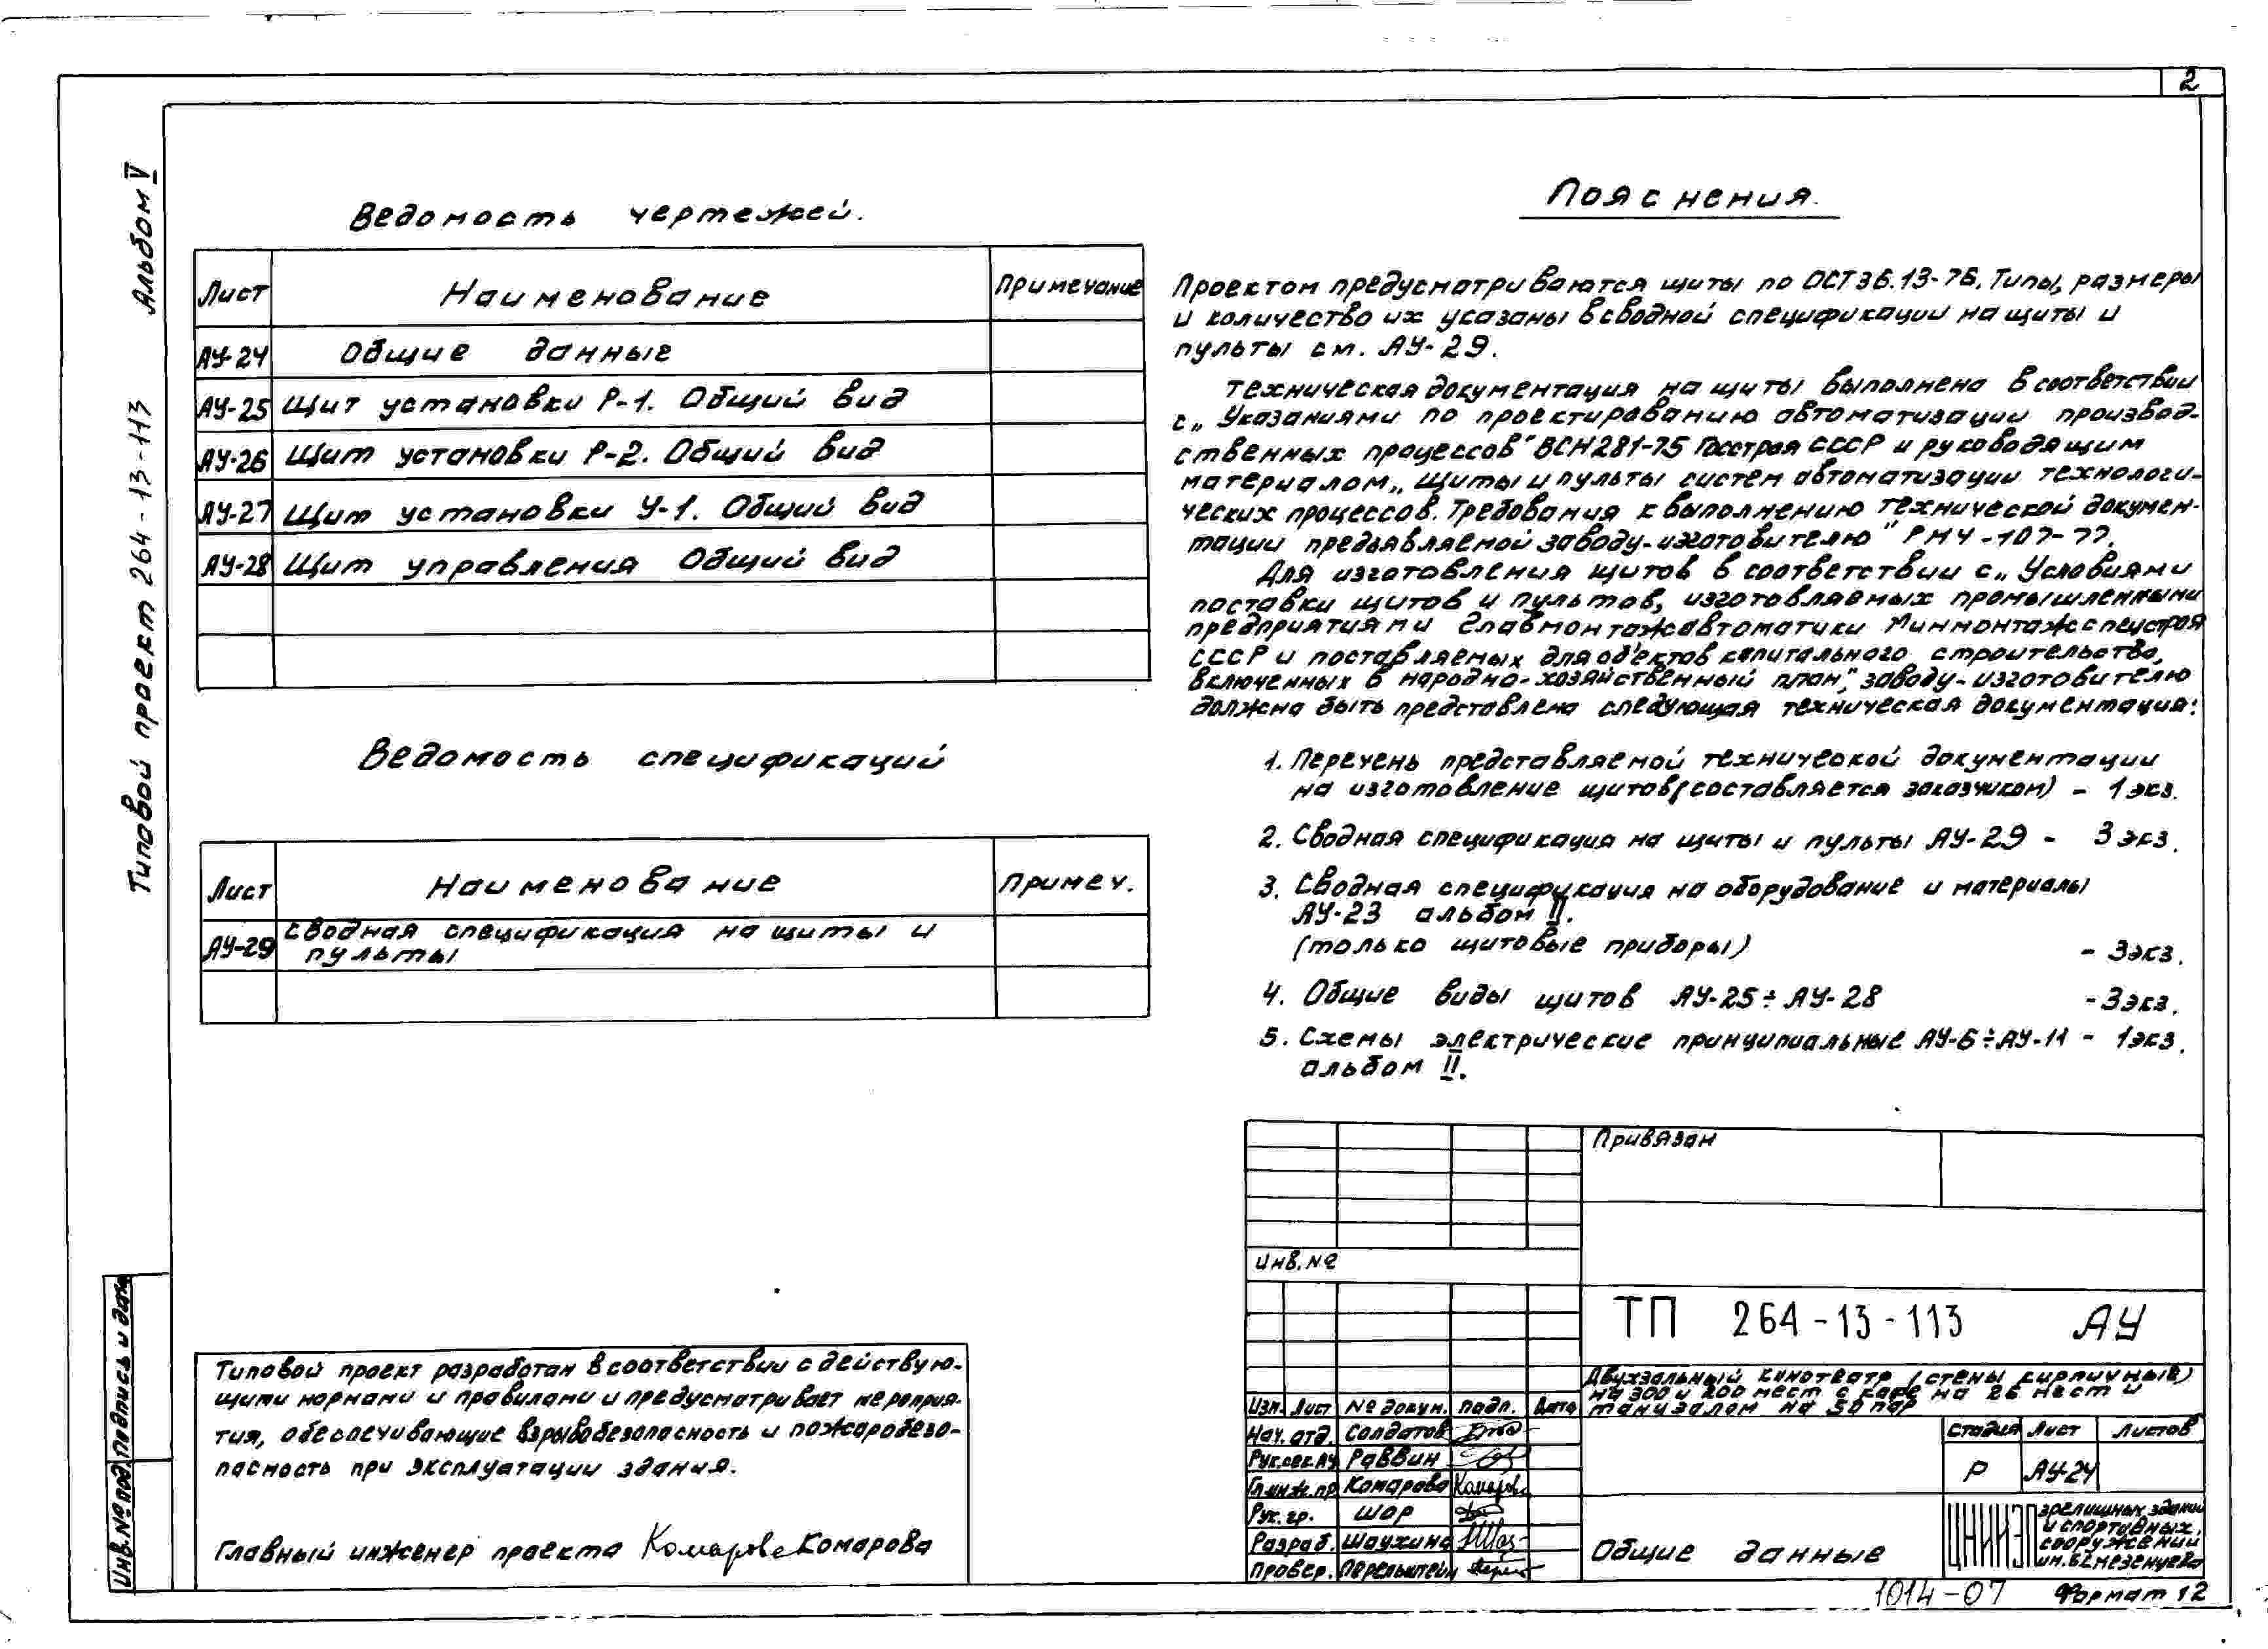 2
Альбом V
Типовой проект 264-13-113
Ведомость чертежей.
Лист Наименование Примечание
АУ-24 Общие данные
АУ-25 Щит установки Р-1. Общий вид
АУ-26 Щит установки Р-2. Общий вид
АУ-27 Щит установки У-1. Общий вид
АУ-28 Щит управления Общий вид
Ведомость спецификаций
Лист Наименование Примеч.
АУ-29 Сводная спецификация на щиты и
пульты
Пояснения.
Проектом предусматриваются щиты по ОСТ 36.13-76. Типы, размеры
и количество их указаны в сводной спецификации на щиты и
пульты см. АУ-29.
Техническая документация на щиты выполнена в соответствии
с „Указаниями по проектированию автоматизации производ-
ственных процессов" ВСН 281-75 Госстроя СССР и руководящим
материалом „Щиты и пульты систем автоматизации технологи-
ческих процессов. Требования к выполнению технической докумен-
тации предъявляемой заводу-изготовителю" РМ4-107-77.
Для изготовления щитов в соответствии с „Условиями
поставки щитов и пультов, изготовляемых промышленными
предприятиями Главмонтажавтоматики Минмонтажспецстроя
СССР и поставляемых для объектов капитального строительства,
включенных в народно-хозяйственный план", заводу-изготовителю
должна быть представлена следующая техническая документация:
1. Перечень представляемой технической документации
на изготовление щитов (составляется заказчиком) - 1 экз.
2. Сводная спецификация на щиты и пульты АУ-29 - 3 экз.
3. Сводная спецификация на оборудование и материалы
АУ-23 альбом II.
(только щитовые приборы) - 3 экз.
4. Общие виды щитов АУ-25÷АУ-28 - 3 экз.
5. Схемы электрические принципиальные АУ-6÷АУ-11 - 1 экз.
альбом II.
Типовой проект разработан в соответствии с действую-
щими нормами и правилами и предусматривает мероприя-
тия, обеспечивающие взрывобезопасность и пожаробезо-
пасность при эксплуатации здания.
Главный инженер проекта Комарова Комарова
Инв. № под. Подпись и дата
Привязан
Инв. №
ТП 264-13-113 АУ
Двухзальный кинотеатр (стены кирпичные)
на 300 и 200 мест с кафе на 26 мест и
танцзалом на 50 пар
Изм. Лист № докум. подп. Дата
Нач. отд. Солдатов
Рук.сек.АУ Раввин
Гл.инж.пр. Комарова Комарова
Рук. гр. Шор
Разраб. Шаухина
Провер. Перельштейн
Стадия Лист Листов
Р АУ-24
Общие данные
ЦНИИЭП зрелищных зданий
и спортивных
сооружений
им. Б.С. Мезенцева
1014-07 Формат 12